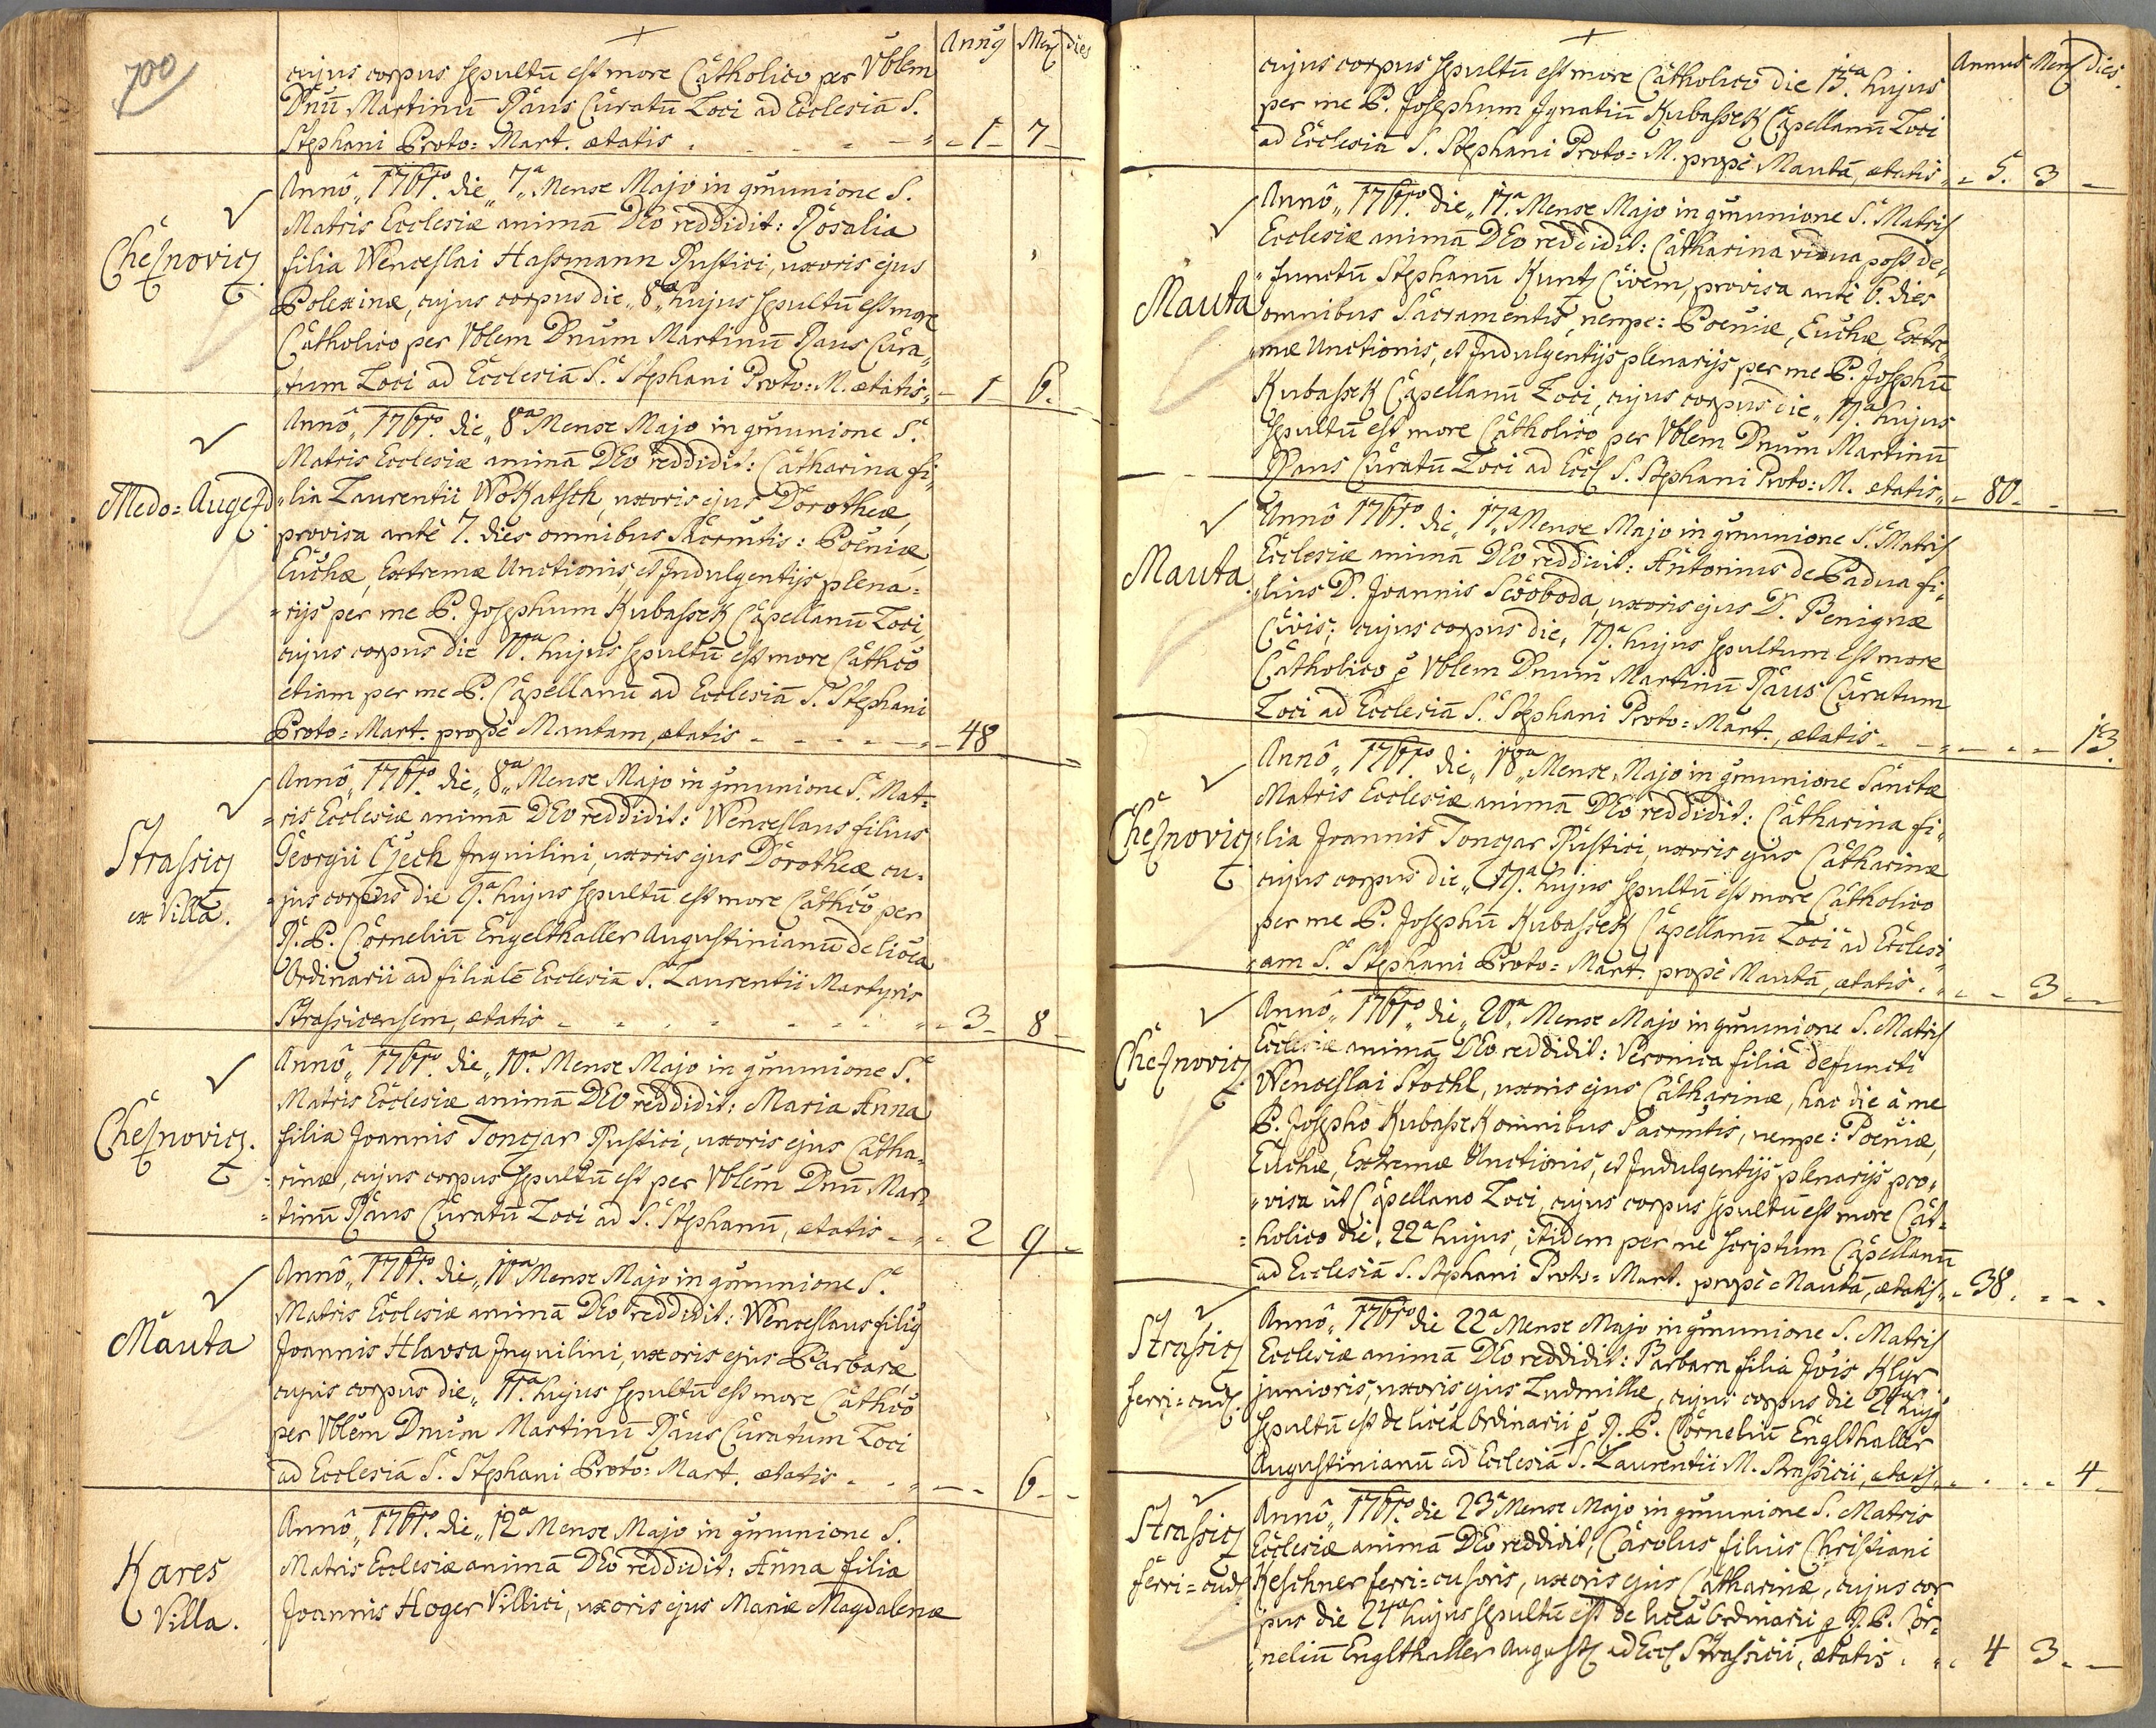 700
Annus Mens dies
cujus corpus sepultū est more Catholico per Vblem
Dnū Martinū Raus Curatū Loci ad Ecclesiā S.
Stephani Proto= Mart. ætatis . . . . 1 7
Anno„ 1761mo die „7a„ Mense Majo in comunione S.
Cheznovicz.
Matris Ecclesiæ animā DEo reddidit: Rosalia
filia Wenceslai Hassmann Rustici, uxoris ejus
Polexinæ, cujus corpus die„ 8a„ hujus sepultū est more
Catholico per Vblem Dnum Martinū Raus Cura„
„tum Loci ad Ecclesiā S. Stephani Proto= M. ætatis„ 1 6.
Anno„ 1761mo die„ 8a Mense Majo in comunione S.
Matris Ecclesiæ animā DEo reddidit: Catharina fi„
Medo= Augezd
„lia Laurentii Wokatsch, uxoris ejus Dorotheæ,
provisa ante 7. dies omnibus Sacrmtis: Poeniæ,
Euchæ, Extremæ Unctionis, et Indulgentijs plena=
=rijs per me P. Josephum Kubassek Capellanū Loci,
cujus corpus die 10a. hujus sepultū est more Cathco
etiam per me P. Capellanū ad Ecclesiā S. Stephani
Proto= Mart. prope Mautam, ætatis . . . . 48
Anno„ 1761mo die„ 8a„ Mense Majo in comunione S. Mat=
=ris Ecclesiæ animā DEo reddidit: Wenceslaus filius
Strassicz
ex Villa.
Georgii Czech Inquilini, uxoris ejus Dorotheæ cu=
=jus corpus die 9a. hujus sepultū est more Cathco per
R. P. Corneliū Engelthaller Augustinianū de licea
Ordinarii ad filialē Ecclesiā S. Laurentii Martyris
Strassicensem, ætatis . . . . 3 8
Anno„ 1761mo die„ 10a. Mense Majo in comunione S.
Matris Ecclesiæ animā DEo reddidit: Maria Anna
Cheznovicz.
filia Joannis Tonczar Rustici, uxoris ejus Catha=
=rinæ, cujus corpus sepultū est per Vblem Dnū Mar=
=tinū Raus Curatū Loci ad S. Stephanū, ætatis . . 2 9
Anno„ 1761mo die„ 10a Mense Majo in comunione S.
Matris Ecclesiæ animā DEo reddidit: Wenceslaus filius
Mauta
Joannis Hlavsa Inquilini, uxoris ejus Barbaræ
cujus corpus die„ 11a. hujus sepultū est more Cathco
per Vblem Dnum Martinū Raus Curatum Loci
ad Ecclesiā S. Stephani Proto= Mart. ætatis . . 6
Anno„ 1761mo die„ 12a Mense Majo in comunione S.
Kares
Villa.
Matris Ecclesiæ animā DEo reddidit: Anna filia
Joannis Hoger Villici, uxoris ejus Mariæ Magdalenæ
Annus Mens dies.
cujus corpus sepultū est more Catholico die 13a. hujus
per me P. Josephum Ignatiū Kubassek Capellanū Loci
ad Ecclesiā S. Stephani Proto= M. prope Mautā, ætatis„ 5. 3
Anno„ 1761mo die„ 17a. Mense Majo in comunione S. Matris
Ecclesiæ animā DEo reddidit: Catharina vidua post de„
Mauta
„functū Stephanū Kuntz Civem, provisa ante 6. dies
omnibus Sacramentis, nempe: Poeniæ, Euchæ Extre„
„mæ Unctionis, et Indulgentijs plenarijs per me P. Josephū
Kubassek Capellanū Loci, cujus corpus die„ 19a. hujus
sepultū est more Catholico per Vblem Dnum Martinū
Raus Curatū Loci ad Eccl S. Stephani Proto= M. ætatis„ 80.
Anno 1761mo die„ 17a Mense Majo in comunione S. Matris
Mauta.
Ecclesiæ animā DEo reddidit: Antonius de Padua fi„
„lius D. Joannis Swoboda, uxoris ejus D. Benignæ
Civis; cujus corpus die, 19a. hujus sepultum est more
Catholico p Vblem Dnum Martinū Raus Curatum
Loci ad Ecclesiā S. Stephani Proto= Mart., ætatis . . 13.
Anno„ 1761mo die„ 18a„ Mense Majo in comunione Sanctæ
Matris Ecclesiæ animā DEo reddidit: Catharina fi„
Cheznovicz
„lia Joannis Tonczar Rustici, uxoris ejus Catharinæ
cujus corpus die„ 19a. hujus sepultū est more Catholico
per me P. Josephū Kubassek Capellanū Loci ad Ecclesi„
„am S. Stephani Proto= Mart. prope Mautā, ætatis . . 3
Anno„ 1761mo„ die„ 20a. Mense Majo in comunione S. Matris
Cheznovicz.
Ecclesiæ animā DEo reddidit: Veronica filia defuncti
Wenceslai Stochl, uxoris ejus Catharinæ, hac die à me
P. Josepho Kubassek omnibus Sacrmtis, nempe: Poeniæ,
Euchæ, Extremæ Unctionis, et Indulgentijs plenarijs pro„
„visa ut Capellano Loci, cujus corpus sepultū est more Cat=
=holico die, 22a hujus, itidem per me scriptum Capellanū
ad Ecclesiā S. Stephani Proto= Mart. prope Mautā, ætatis„ 38.
Anno„ 1761mo die 22a Mense Majo in comunione S. Matris
Strassicz
ferri=cud.
Ecclesiæ animā DEo reddidit: Barbara filia Jois Klyr
junioris, uxoris ejus Ludmillæ, cujus corpus die 24a hujus
sepultū est de licea Ordinarii p R. P. Corneliū Englthaller
Augustinianū ad Ecclesiā S. Laurentii M. Strassicii, ætatis„ 4
Anno„ 1761mo die 23a Mense Majo in comunione S. Matris
Strassicz
ferri=cud.
Ecclesiæ animā DEo reddidit, Carolus filius Christiani
Keschner ferri=cusoris, uxoris ejus Catharinæ, cujus cor
pus die 24a hujus sepultū est de licea Ordinarii p R. P. Cor=
„neliū Englthaller August ad Eccl Strassicii, ætatis . . 4 3